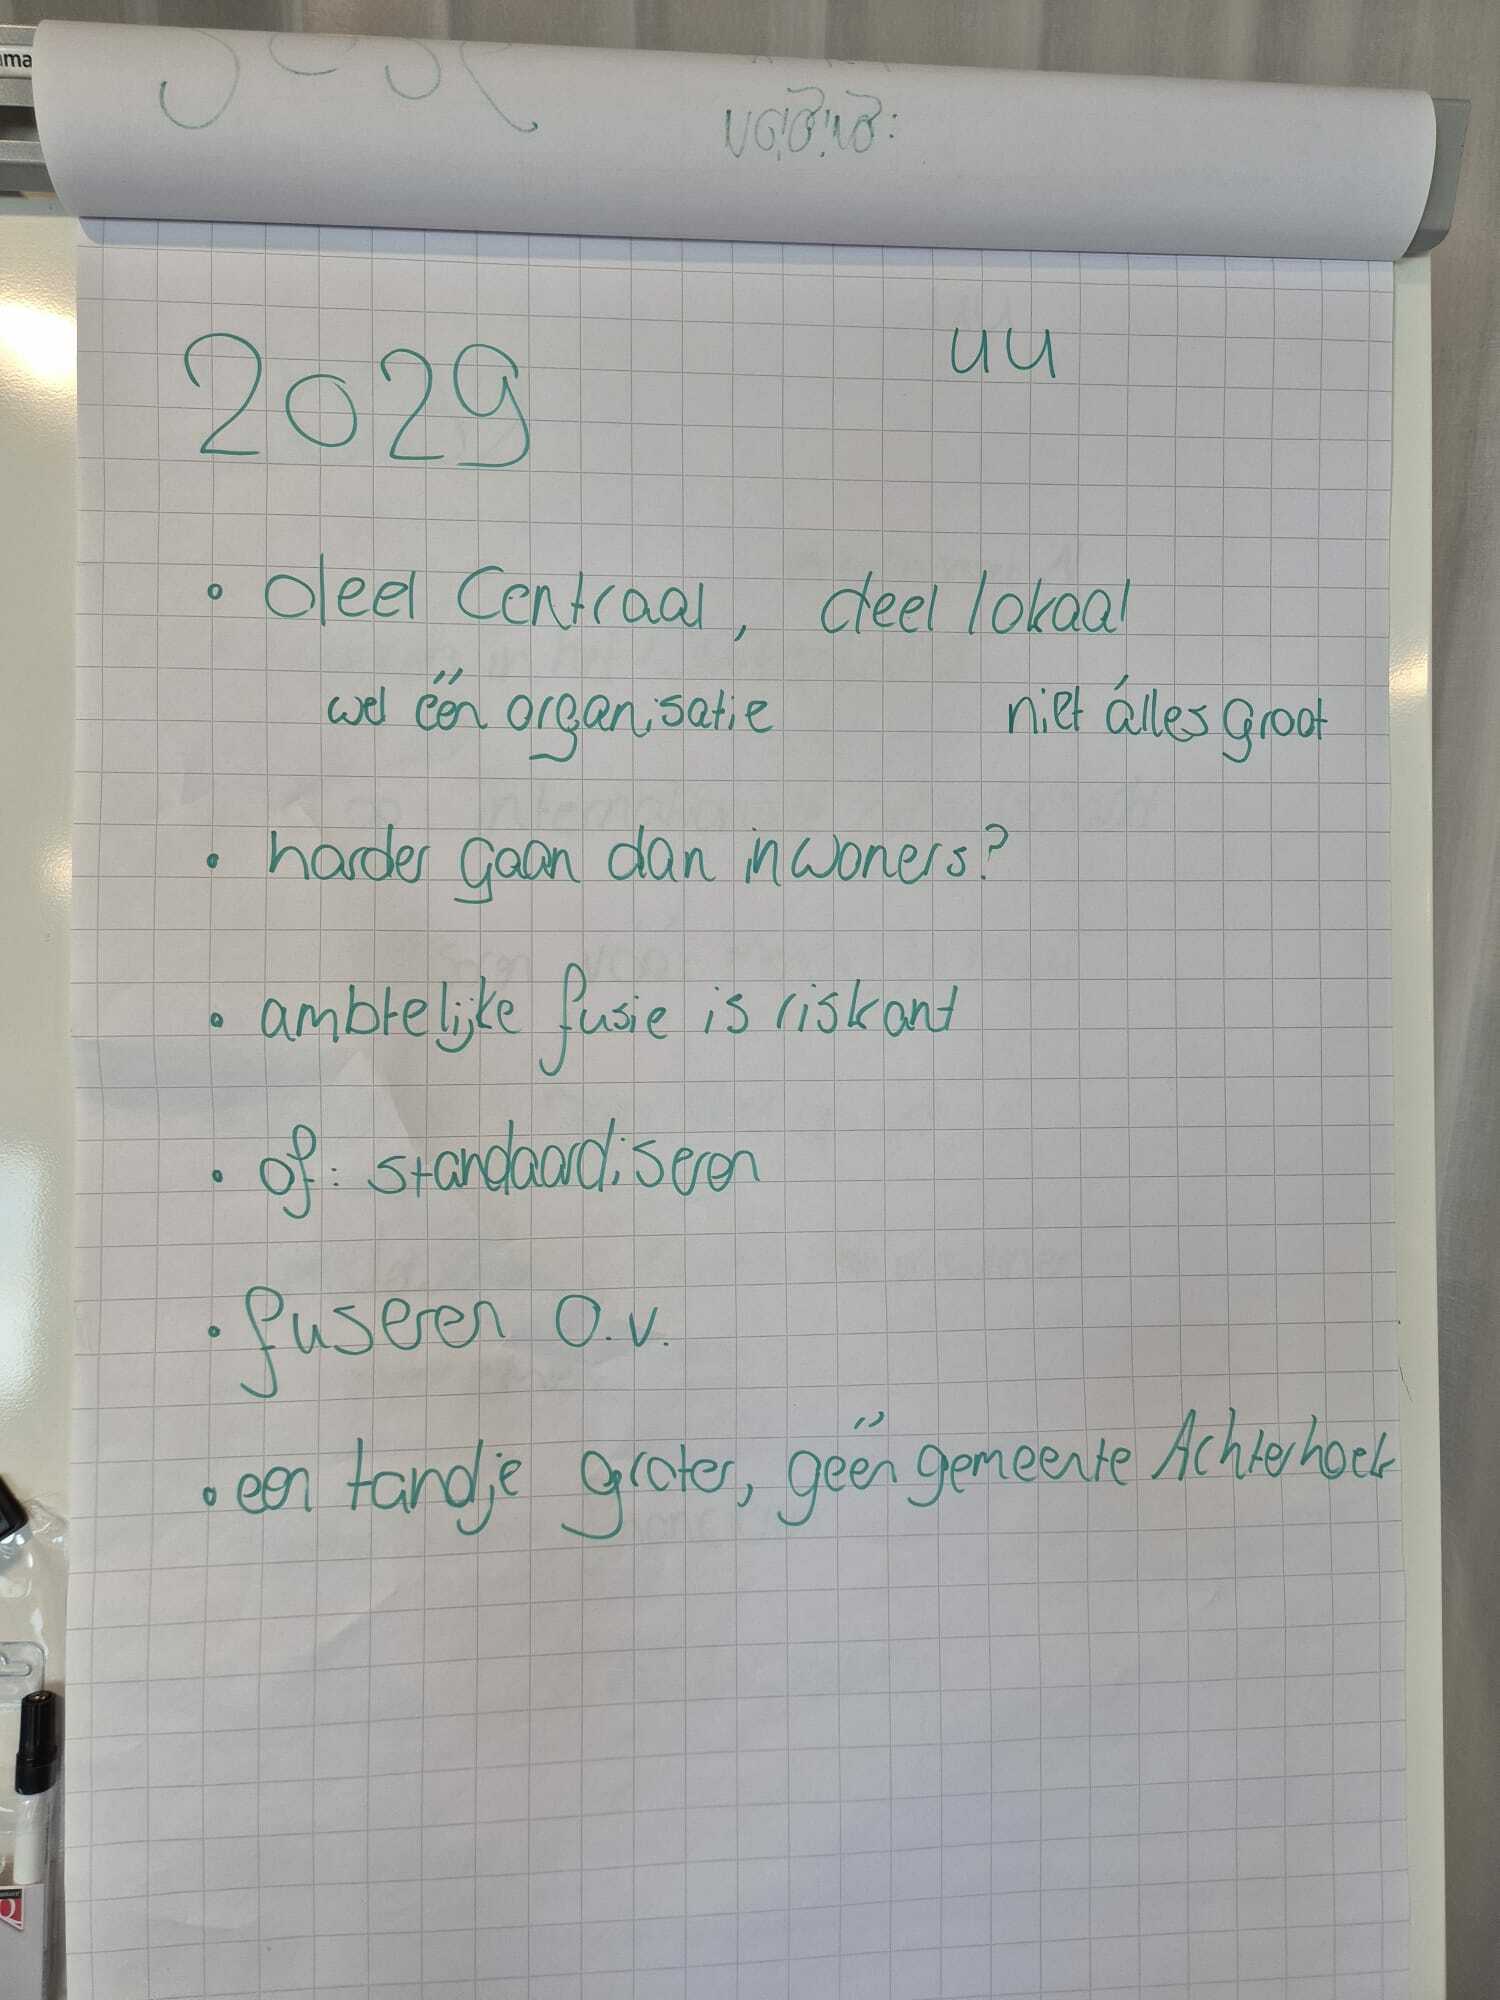 2029
uu
• deel Centraal, deel lokaal
wel één organisatie niet álles groot
• harder gaan dan inwoners?
• ambtelijke fusie is riskant
• of: standaardiseren
• fuseren o.v.
• een tandje groter, géén gemeente Achterhoek